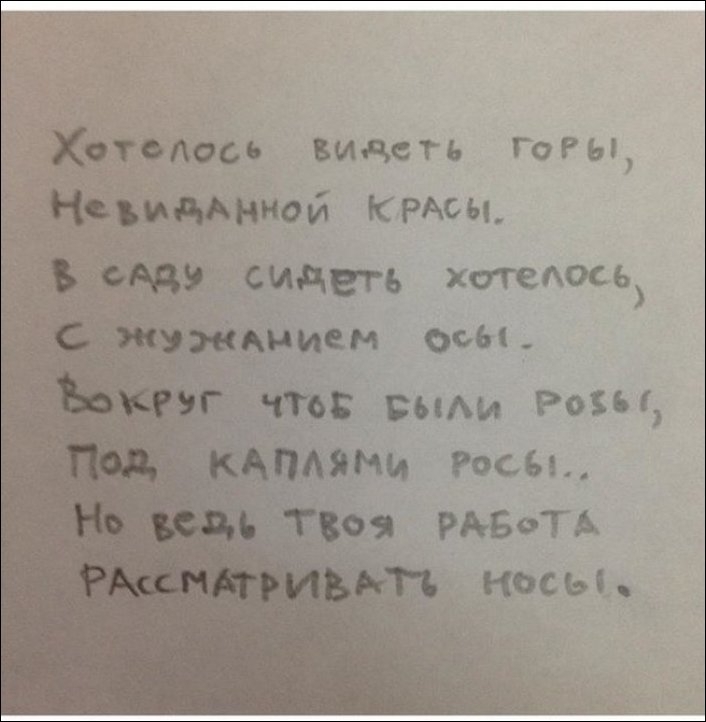 Хотелось видеть горы,
Невиданной красы.
В саду сидеть хотелось,
С жужжанием осы.
Вокруг чтоб были розы,
Под каплями росы..
Но ведь твоя работа
рассматривать носы.